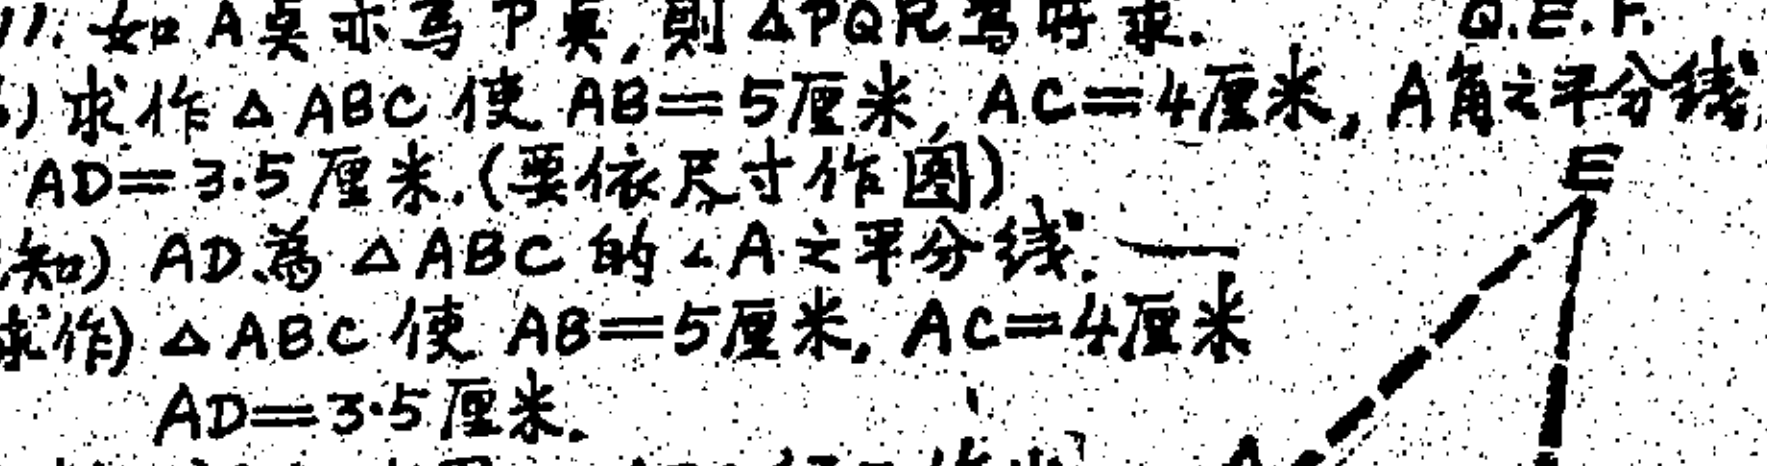 如A奌亦爲P奌,則△PQR爲所求. Q.E.F.
) 求作△ABC使AB=5厘米, AC=4厘米, A角之平分线
AD=3.5厘米.(要依尺寸作圖)
知) AD為△ABC的∠A之平分线.
求作) △ABC使AB=5厘米, AC=4厘米
AD=3.5厘米.
E
A